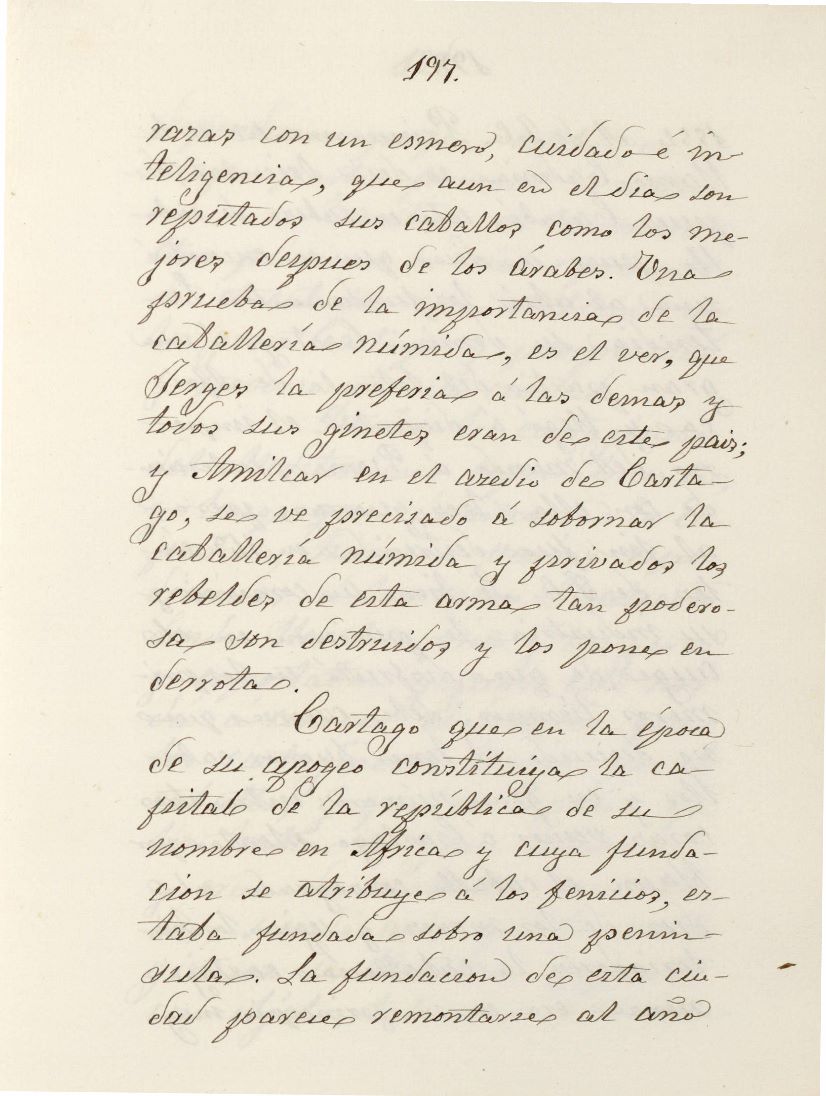 197.
razas con un esmero, cuidado é in-
teligencia, que aun en el dia son
reputados sus caballos como los me-
jores despues de los árabes. Una
prueba de la importancia de la
caballería númida, es el ver, que
Jerges la preferia á las demas y
todos sus ginetes eran de este pais;
y Amilcar en el asedio de Carta-
go, se ve precisado á sobornar la
caballería númida y privados los
rebeldes de esta arma tan podero-
sa son destruidos y los pone en
derrota.
Cartago que en la época
de su apogeo constituiya la ca-
pital de la república de su
nombre en Africa y cuya funda-
cion se atribuye á los fenicios, es-
taba fundada sobre una penin-
sula. La fundacion de esta ciu-
dad parece remontarse al año